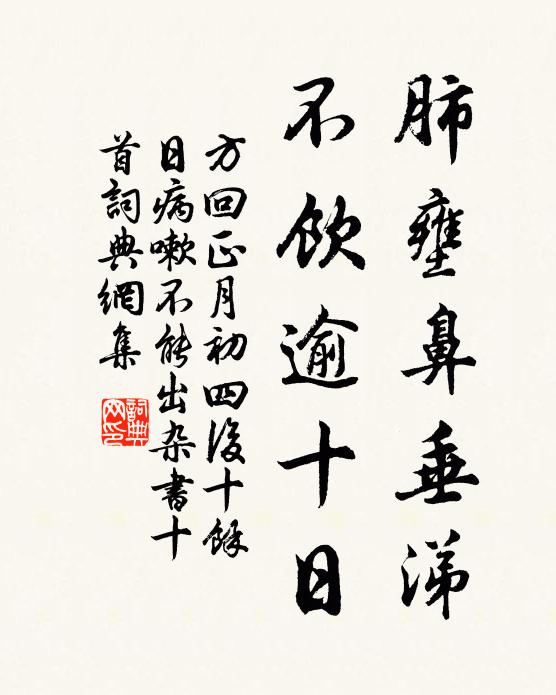 肺壅鼻垂涕
不飲逾十日
方回正月初四後十餘
日病嗽不能出杂書十
首詞典網集
詞典
网印